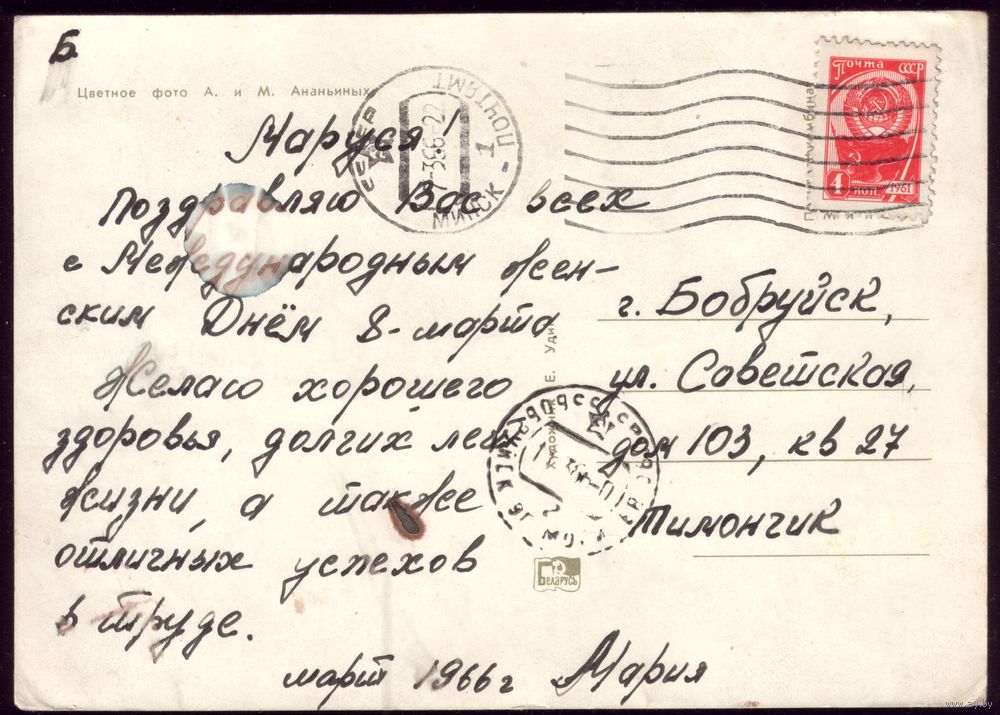 Б.
Цветное фото А. и М. Ананьиных
Маруся!
Поздравляю Вас всех
с Международным Жен-
ским Днём 8-марта
Желаю хорошего
здоровья, долгих лет
жизни, а также
отличных успехов
в труде.
март 1966 г Мария
Почта СССР
4 коп 1961
МИНСК - 1 ПОЧТАМТ
СССР
7-366-22
г. Бобруйск,
ул. Советская,
дом 103, кв 27
Тимончик
Художник Е.
Беларусь
www.ay.by